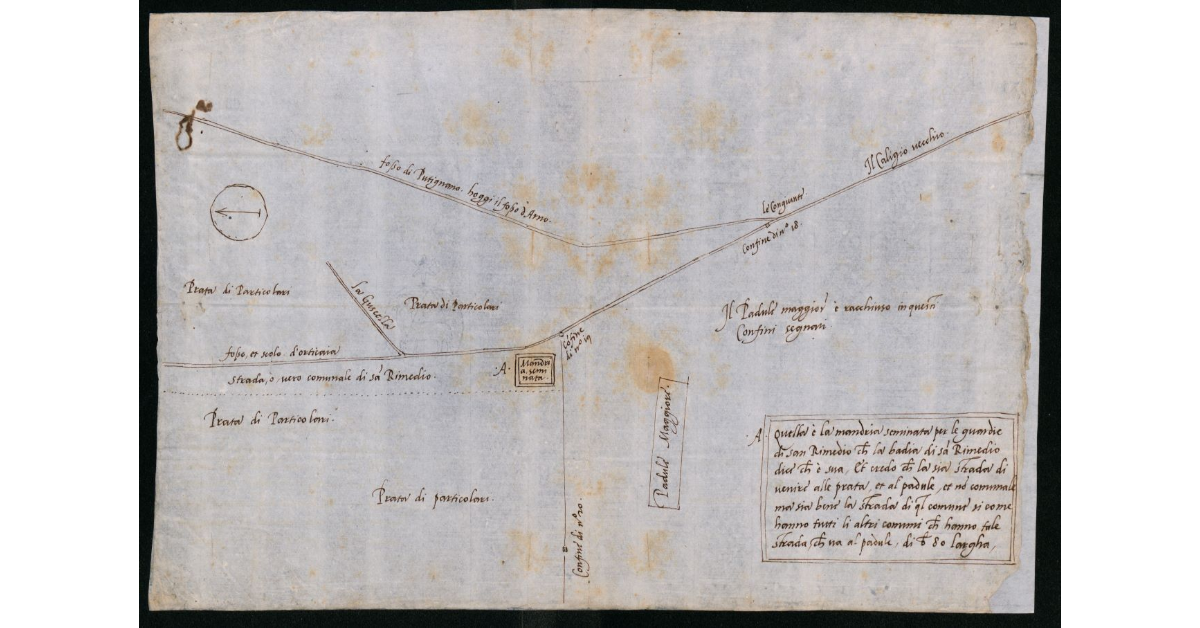 Il Caligio vecchio.
fosso di Putignano. hoggi il fosso d'Arno.
le Conquinte
Confine di nº 18.
Prata di Particolari
la Guiscella
Prata di particolari
Il Padule maggior è racchiuso in questi
Confini segnati
Cōfine
di nº 19
fosso, et scolo d'orticaia
.A.
Mandri
a. semi
nata
Strada, o vero comunale di sā Rimedio.
Prata di Particolari.
Padule Maggiore.
Prata di particolari.
Confine di nº 20.
A.
Questa è la mandria seminata per le guardie
di san Rimedio ch̄ la badia di sā Rimedio
dice ch̄ è sua, Et credo ch̄ la sia strada di
venire alle prata, et al padule, et nō comunale
ma sia bene la strada di ql̄ comune si come
hanno tutti li altri comuni ch̄ hanno tale
strada, ch̄ va al padule, di 80 largha,